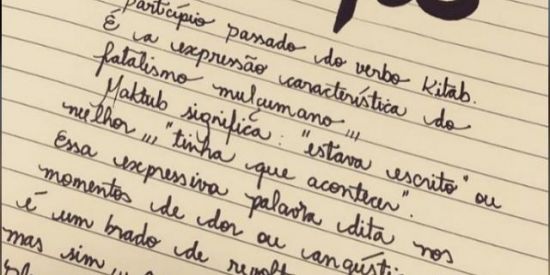 particípio passado do verbo Kitab.
É a expressão característica do
fatalismo mulçumano,,,
Maktub significa: "estava escrito" ou
melhor,,, "tinha que acontecer".
Essa expressiva palavra dita nos
momentos de dor ou
é um brado de
mas sim,,,